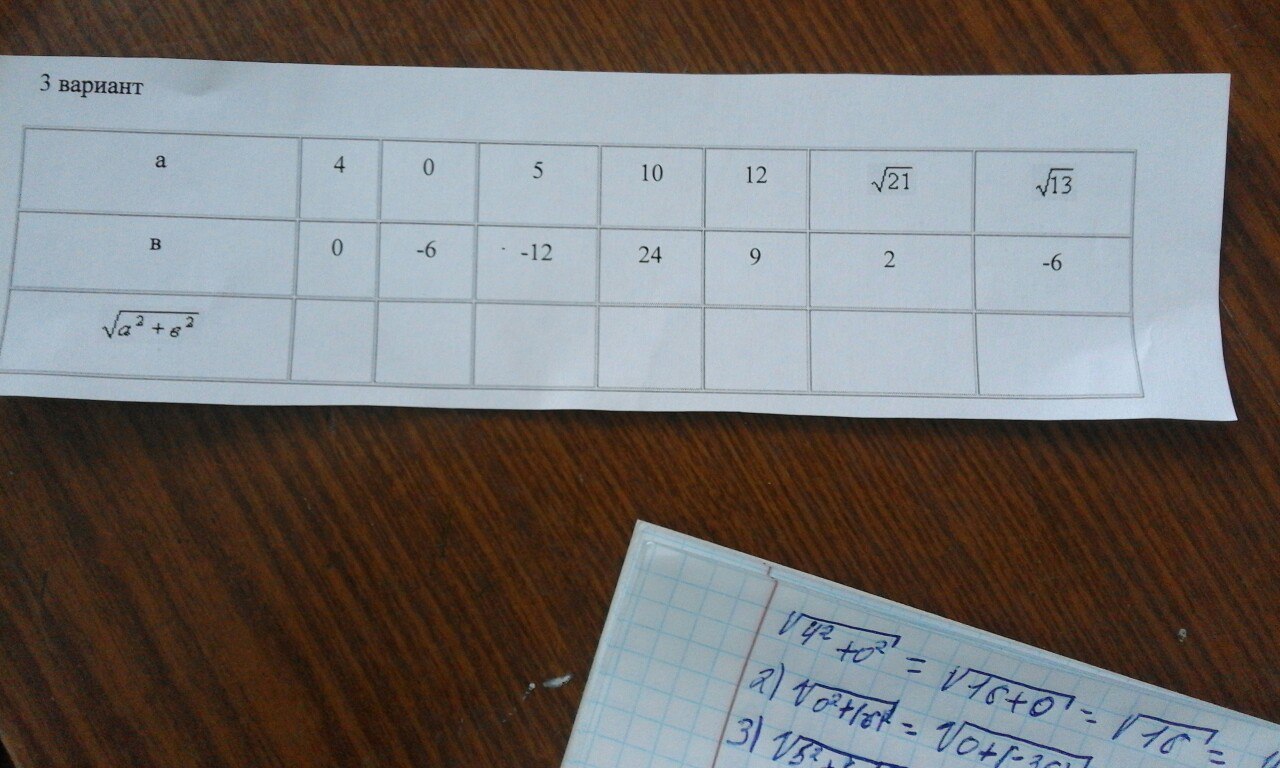 3 вариант
а 4 0 5 10 12 √21 √13
в 0 -6 -12 24 9 2 -6
√a² + в²
√4² + 0² = √16 + 0 = √16 =
2) √0² + = √0 +
3) √5² +